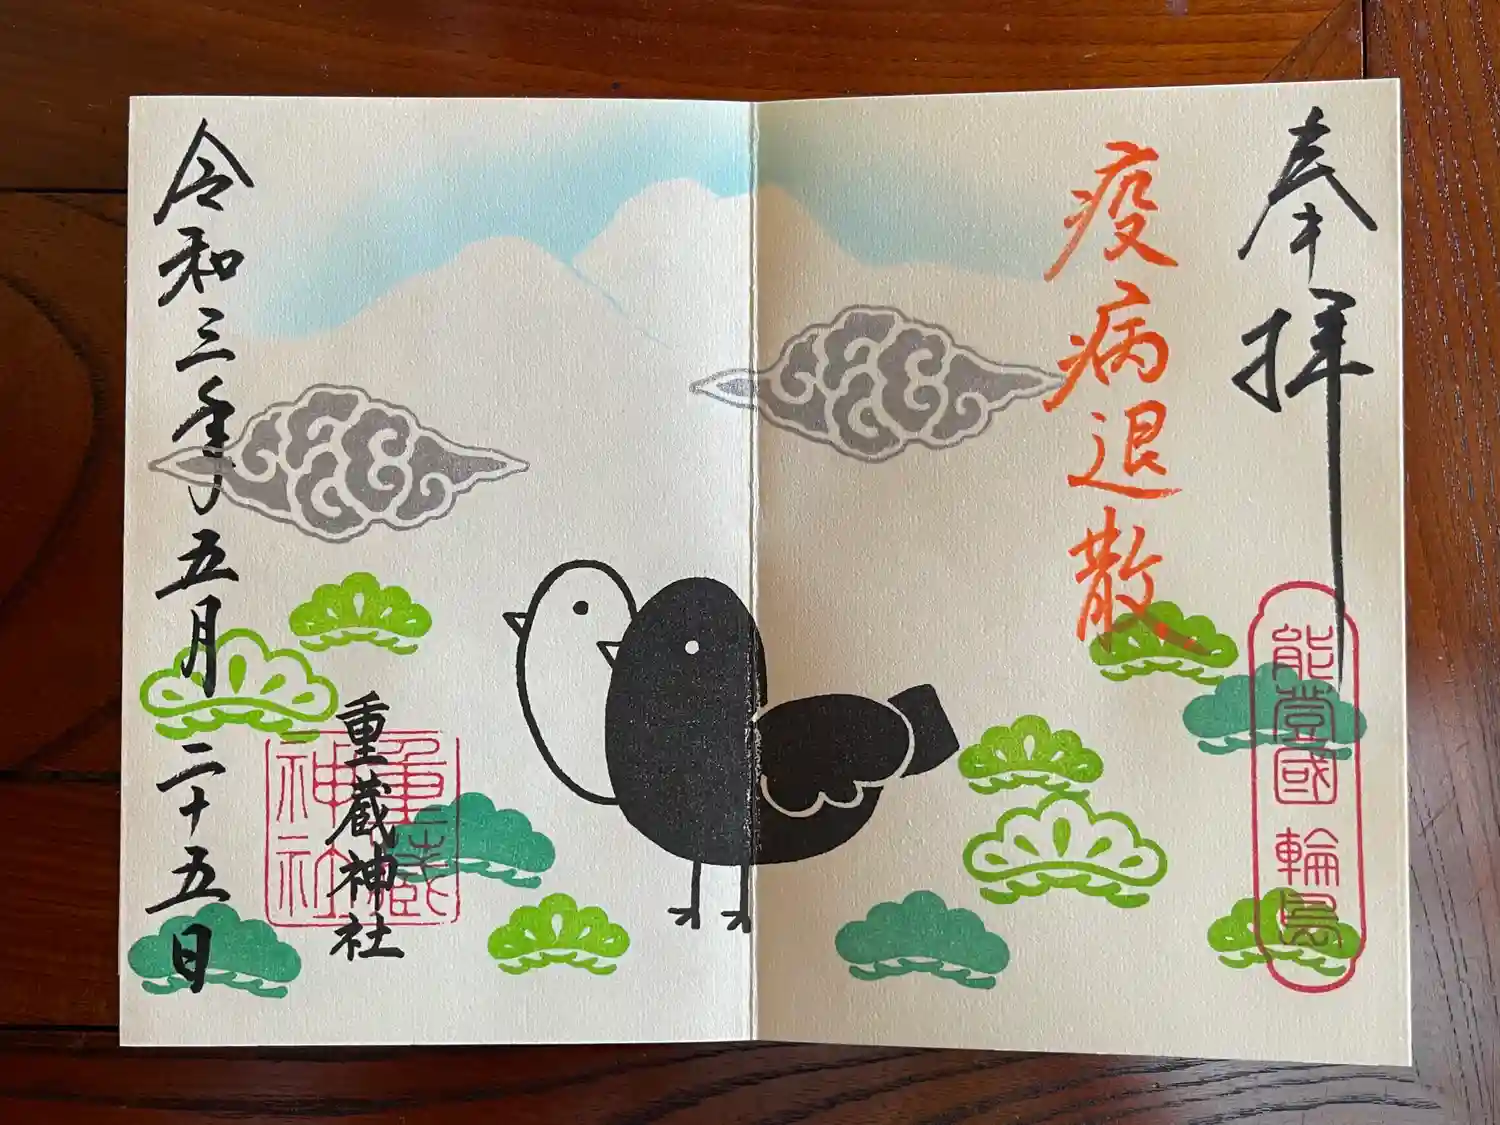 奉拝
疫病退散
能登國 輪島
重蔵神社
重蔵神社
令和三年五月二十五日